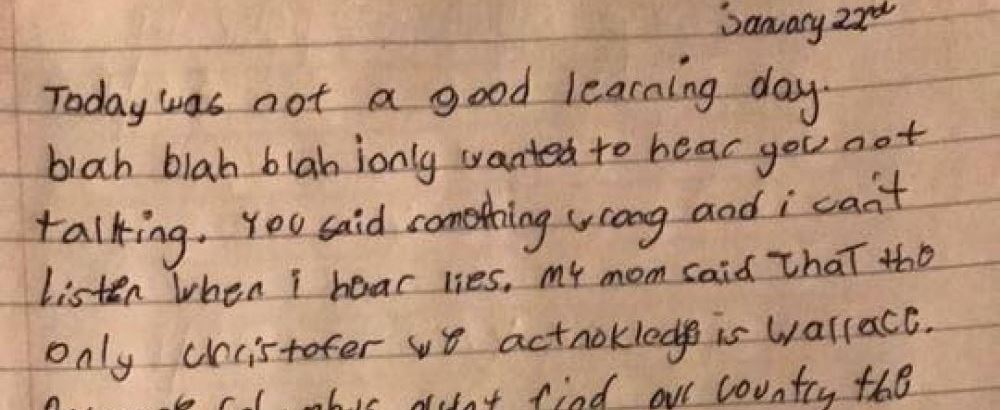 January 22nd
Today was not a good learning day.
blah blah blah i only wanted to hear you not
talking. You said something wrong and i can't
listen when i hear lies. My mom said that the
only christofer we acknokledge is Wallace.
find our country the